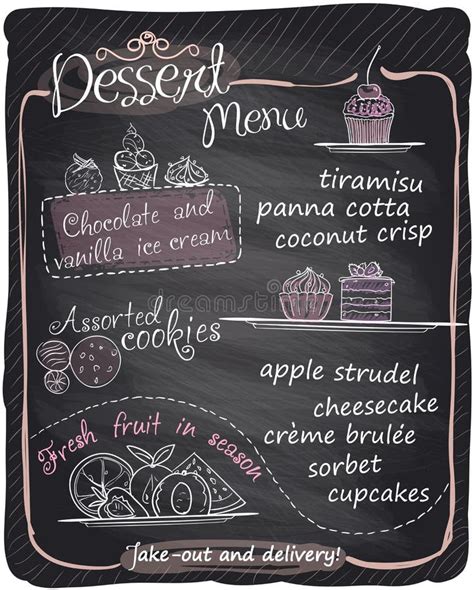 Dessert
Menu
Chocolate and
vanilla ice cream
tiramisu
panna cotta
coconut crisp
Assorted
cookies
apple strudel
cheesecake
crème brulée
sorbet
cupcakes
Fresh fruit in season
Take-out and delivery!
dreamstime